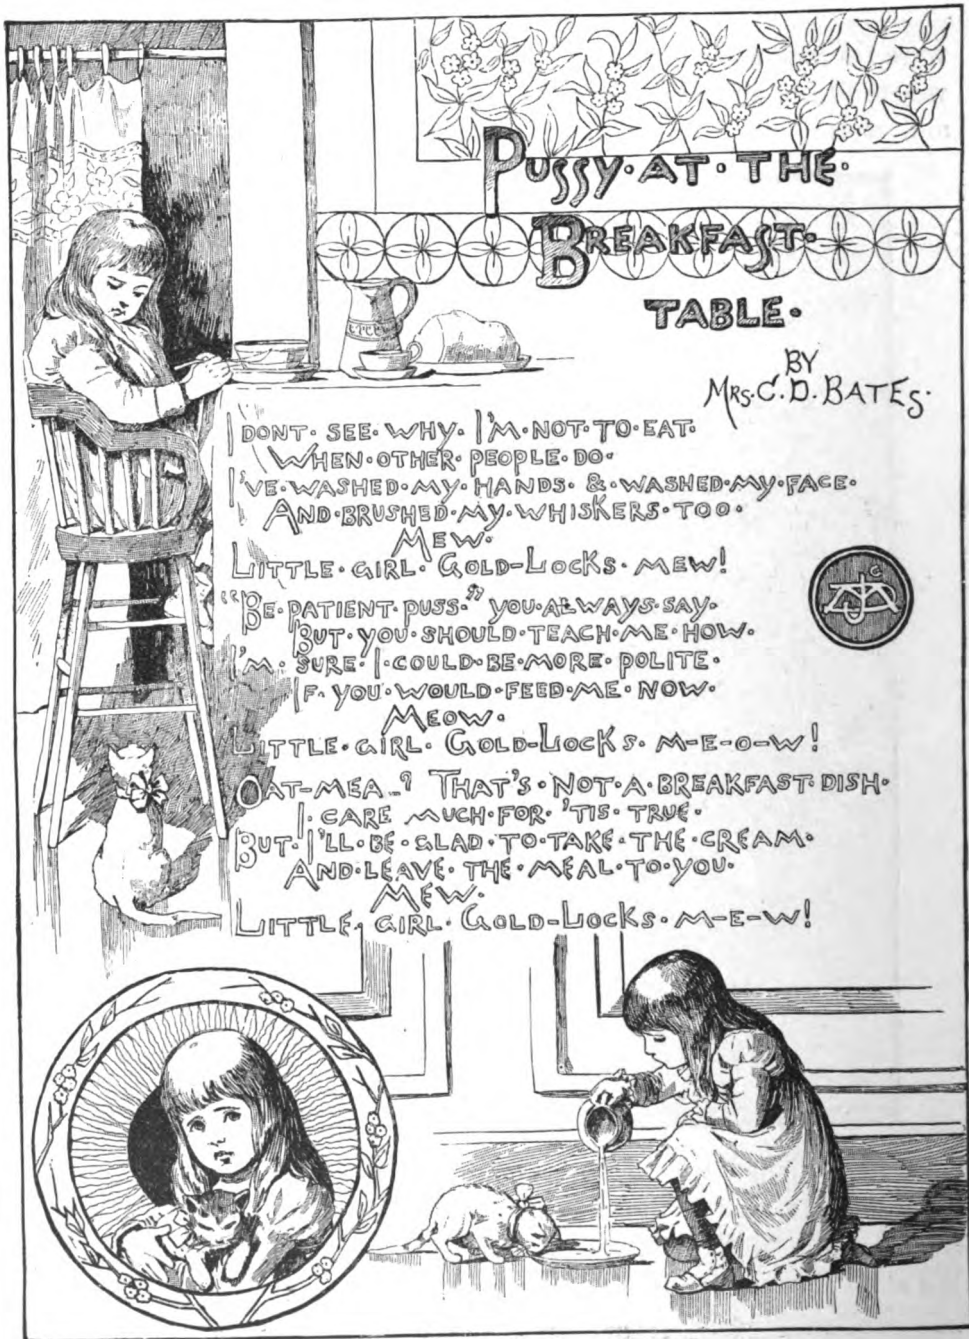 PUSSY·AT·THE·
BREAKFAST·
TABLE·
BY
MRS·C·D·BATES·
I DONT·SEE·WHY·I'M·NOT·TO·EAT·
WHEN·OTHER·PEOPLE·DO·
I'VE·WASHED·MY·HANDS·&·WASHED·MY·FACE·
AND·BRUSHED·MY·WHISKERS·TOO·
MEW·
LITTLE·GIRL·GOLD-LOCKS·MEW!
"BE·PATIENT·PUSS·"YOU·ALWAYS·SAY·
BUT·YOU·SHOULD·TEACH·ME·HOW·
I'M·SURE·I·COULD·BE·MORE·POLITE·
IF·YOU·WOULD·FEED·ME·NOW·
MEOW·
LITTLE·GIRL·GOLD-LOCKS·M-E-O-W!
OAT-MEAL? THAT'S·NOT·A·BREAKFAST·DISH·
I·CARE MUCH·FOR·'TIS·TRUE·
BUT·I'LL·BE·GLAD·TO·TAKE·THE·CREAM·
AND·LEAVE·THE·MEAL·TO·YOU·
MEW·
LITTLE·GIRL·GOLD-LOCKS·M-E-W!